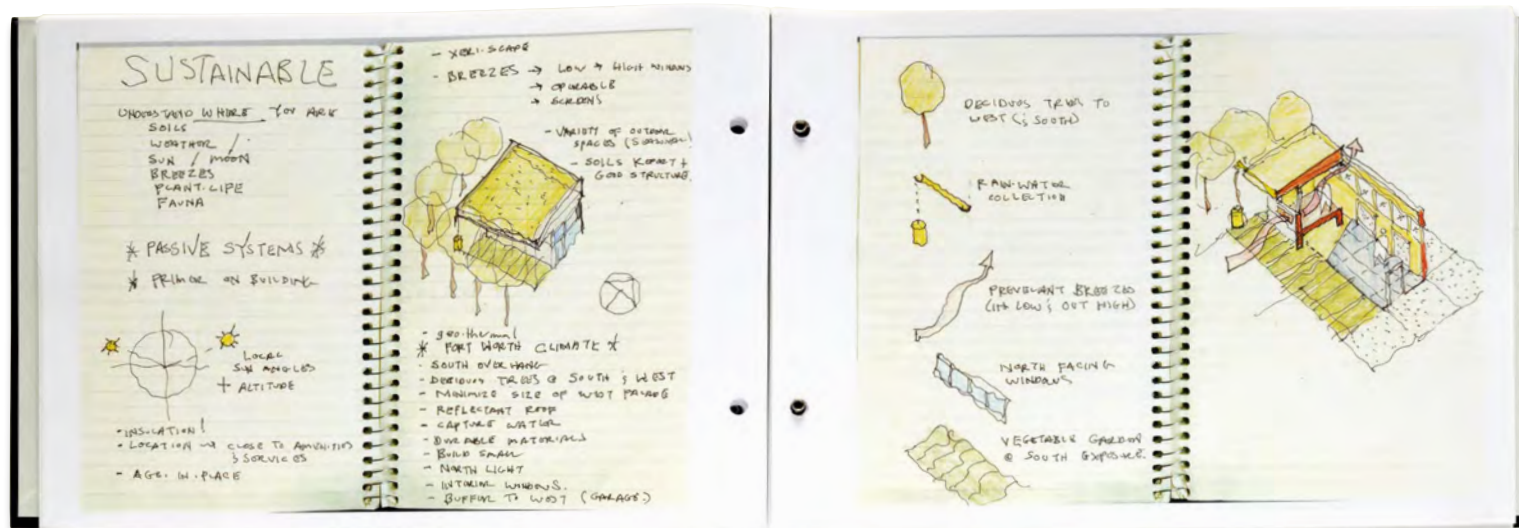 SUSTAINABLE
UNDERSTAND WHERE YOU ARE
SOILS
WEATHER
SUN / MOON
BREEZES
PLANT-LIFE
FAUNA
* PASSIVE SYSTEMS *
* PRIMER ON BUILDING
LOCAL
SUN ANGLES
+ ALTITUDE
- INSULATION!
- LOCATION → CLOSE TO AMENITIES
& SERVICES
- AGE-IN-PLACE
- XERI-SCAPE
- BREEZES → LOW + HIGH WINDOWS
→ OPERABLE
→ SCREENS
- VARIETY OF OUTDOOR
SPACES (SEASONAL!
- SOILS REPORT +
GOOD STRUCTURE.
- geo-thermal
* FORT WORTH CLIMATE *
- SOUTH OVERHANG
- DECIDUOUS TREES @ SOUTH & WEST
- MINIMIZE SIZE OF WEST FACADE
- REFLECTANT ROOF
- CAPTURE WATER
- DURABLE MATERIALS
- BUILD SMALL
- NORTH LIGHT
- INTERIOR WINDOWS.
- BUFFER TO WEST (GARAGE.)
DECIDUOS TREES TO
WEST (& SOUTH)
RAIN-WATER
COLLECTION
PREVELANT BREEZES
(IN LOW & OUT HIGH)
NORTH FACING
WINDOWS
VEGETABLE GARDEN
@ SOUTH EXPOSURE.